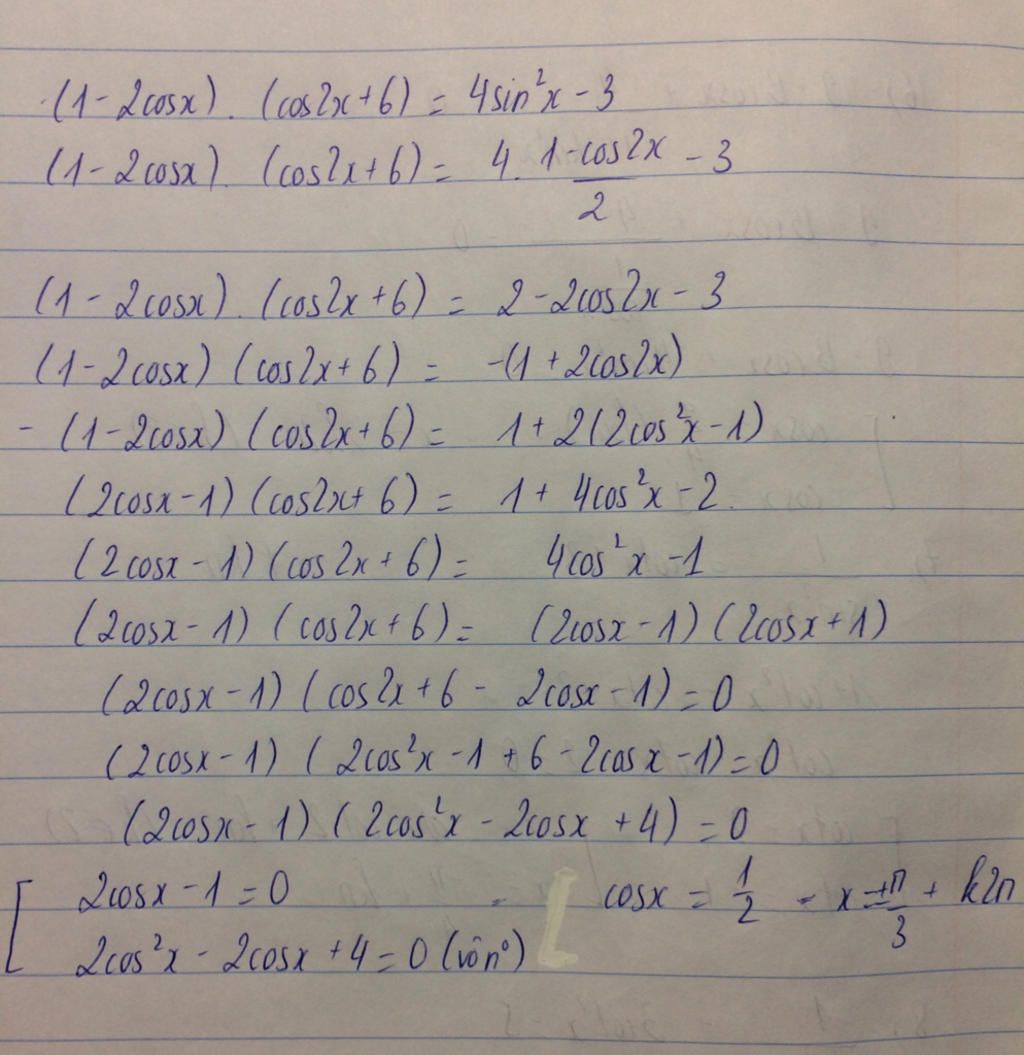 (1-2cosx). (cos2x+6) = 4sin²x - 3
(1-2cosx). (cos2x+6) = 4. (1-cos2x)/2 - 3
(1-2cosx). (cos2x+6) = 2-2cos2x-3
(1-2cosx) (cos2x+6) = -(1+2cos2x)
- (1-2cosx) (cos2x+6) = 1+2(2cos²x-1)
(2cosx-1) (cos2x+6) = 1+ 4cos²x-2.
(2cosx-1) (cos2x+6) = 4cos²x-1
(2cosx-1) (cos2x+6) = (2cosx-1) (2cosx+1)
(2cosx-1) (cos2x+6 - 2cosx-1) = 0
(2cosx-1) (2cos²x -1+6-2cosx-1) = 0
(2cosx-1) (2cos²x - 2cosx +4) = 0
[ 2cosx-1=0 - cosx = 1/2 - x = ±π/3 + k2π
2cos²x - 2cosx +4=0 (vô n°)